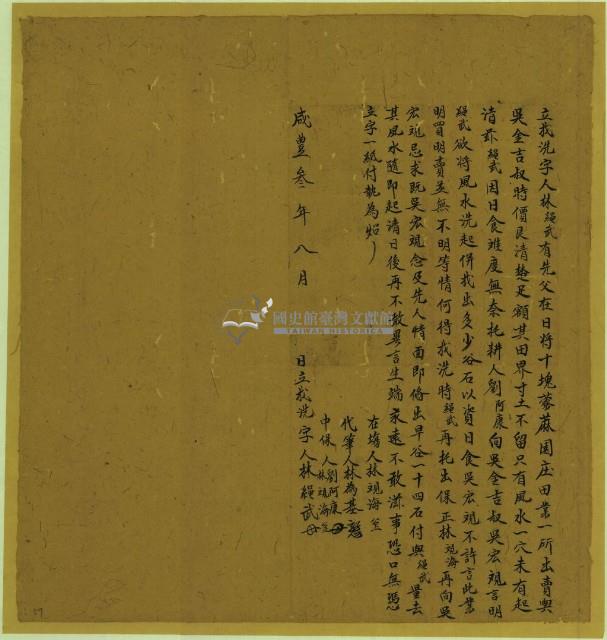 立找洗字人林繩武有先父在日將十塊藔蔴園庄田業一所出賣與
吳全吉叔時價艮清楚足額其田界寸土不留只有風水一穴未有起
清茲繩武因日食难度無奈托耕人劉阿康向吳全吉叔吳宏規言明
繩武欲將風水洗起併找出多少谷石以資日食吳宏規不許言此業
明買明賣並無不明等情何得找洗時繩武再托出保正林規海再向吳
宏規忌求既吳宏規念及先人情面即俻出早谷一十四石付與繩武量去
其風水隨即起清日後再不敢異言生端永遠不敢滋事恐口無憑
立字一紙付執為炤
在塲人林規海
代筆人林為基
中保人劉阿康
林規海
咸豐叁年八月 日立找洗字人林繩武
國史館臺灣文獻館
TAIWAN HISTORICA